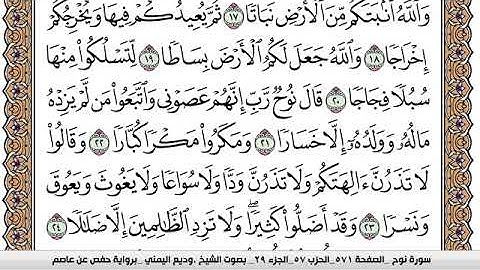 وَاللَّهُ أَنۢبَتَكُم مِّنَ ٱلْأَرْضِ نَبَاتًا ١٧ ثُمَّ يُعِيدُكُمْ فِيهَا وَيُخْرِجُكُمْ
إِخْرَاجًا ١٨ وَٱللَّهُ جَعَلَ لَكُمُ ٱلْأَرْضَ بِسَاطًا ١٩ لِّتَسْلُكُوا۟ مِنْهَا
سُبُلًا فِجَاجًا ٢٠ قَالَ نُوحٌ رَّبِّ إِنَّهُمْ عَصَوْنِى وَٱتَّبَعُوا۟ مَن لَّمْ يَزِدْهُ
مَالُهُۥ وَوَلَدُهُۥٓ إِلَّا خَسَارًا ٢١ وَمَكَرُوا۟ مَكْرًا كُبَّارًا ٢٢ وَقَالُوا۟
لَا تَذَرُنَّ ءَالِهَتَكُمْ وَلَا تَذَرُنَّ وَدًّا وَلَا سُوَاعًا وَلَا يَغُوثَ وَيَعُوقَ
وَنَسْرًا ٢٣ وَقَدْ أَضَلُّوا۟ كَثِيرًا ۖ وَلَا تَزِدِ ٱلظَّٰلِمِينَ إِلَّا ضَلَٰلًا ٢٤
سورة نوح _الصفحة ٥٧١_الحزب ٥٧_الجزء ٢٩_ بصوت الشيخ .وديع اليمني _برواية حفص عن عاصم